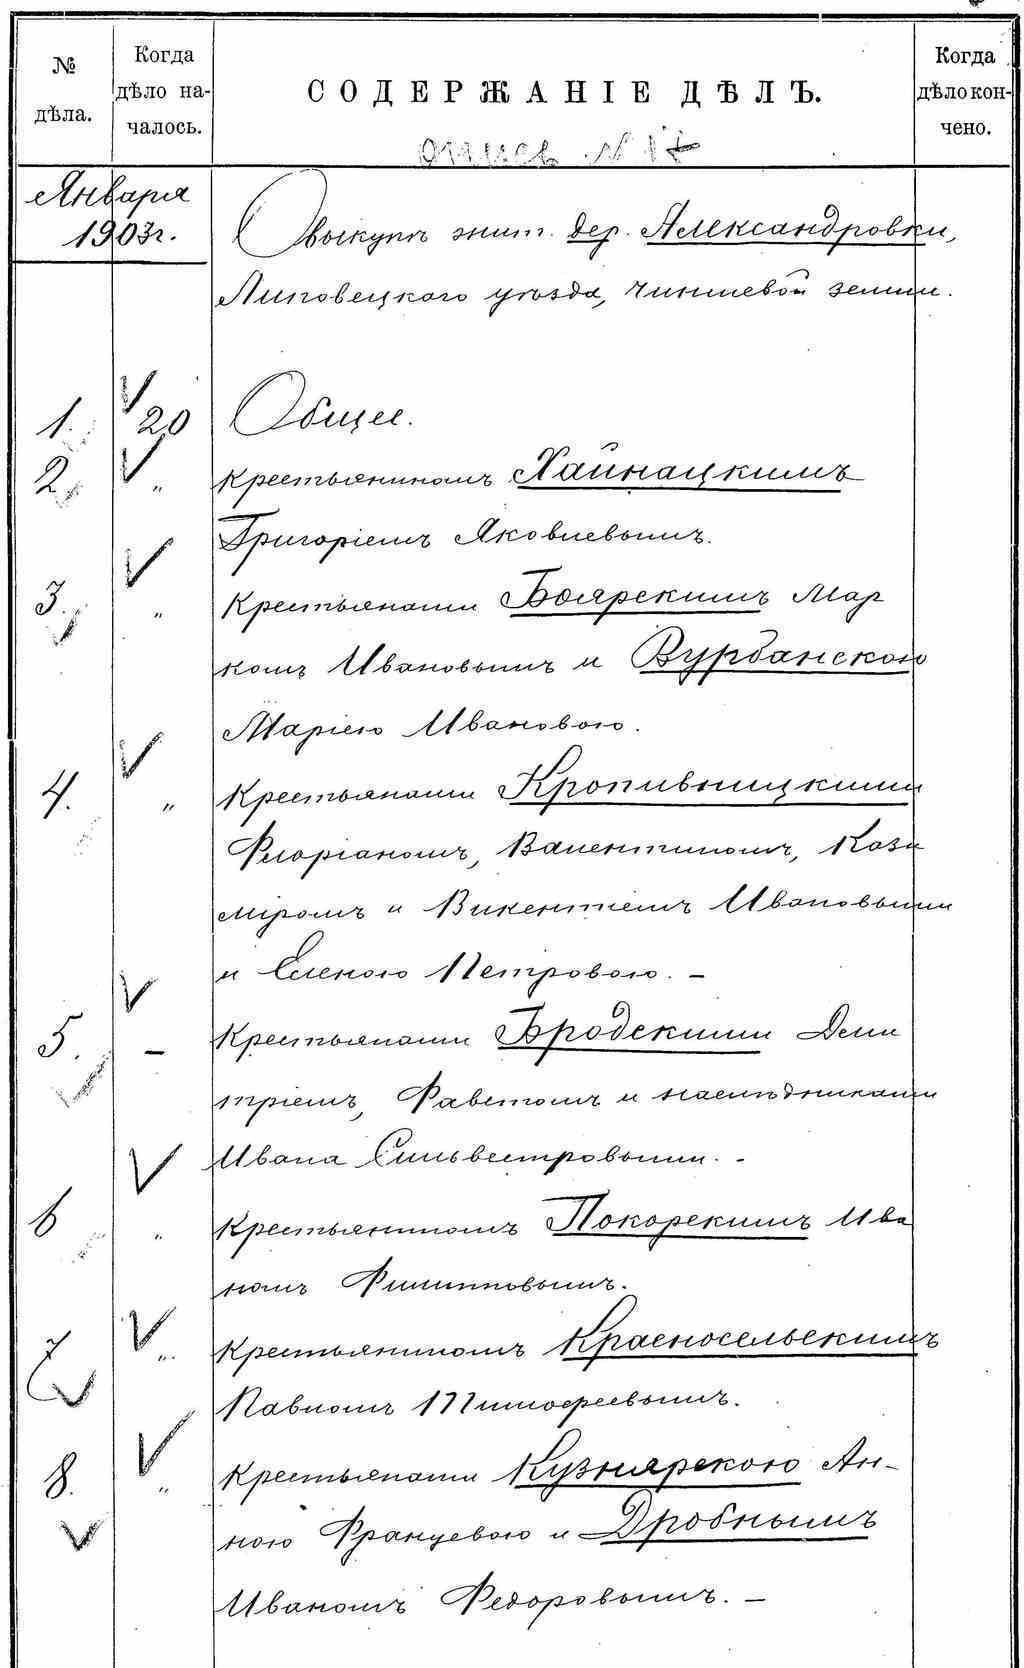 № дѣла.
Когда дѣло на-
чалось.
СОДЕРЖАНІЕ ДѢЛЪ.
Когда дѣло кон-
чено.
опись №17
Января
1903г.
О выкупѣ жит. дер. Александровки,
Липовецкаго уѣзда, чиншевой земли.
1. 20 Общее.
2. „ Крестьяниномъ Хайнацкимъ
Григоріемъ Яковлевымъ.
3. „ Крестьянами Боярскимъ Мар
комъ Ивановымъ и Вурбанскою
Маріею Ивановою.
4. „ Крестьянами Кропивницкими
Флоріаномъ, Валентиномъ, Кази
міромъ и Викентіемъ Ивановыми
и Еленою Петровою. –
5. – Крестьянами Бродскими Дми
тріемъ, Фавстомъ и наслѣдниками
Ивана Сильвестровыми. -
6 „ Крестьяниномъ Покорскимъ Ива
номъ Филипповымъ.
7 „. Крестьяниномъ Красносельскимъ
Павломъ Тимофеевымъ.
8. „ Крестьянами Кузнярскою Ан-
ною Францевою и Дробнымъ
Иваномъ Федоровымъ. –